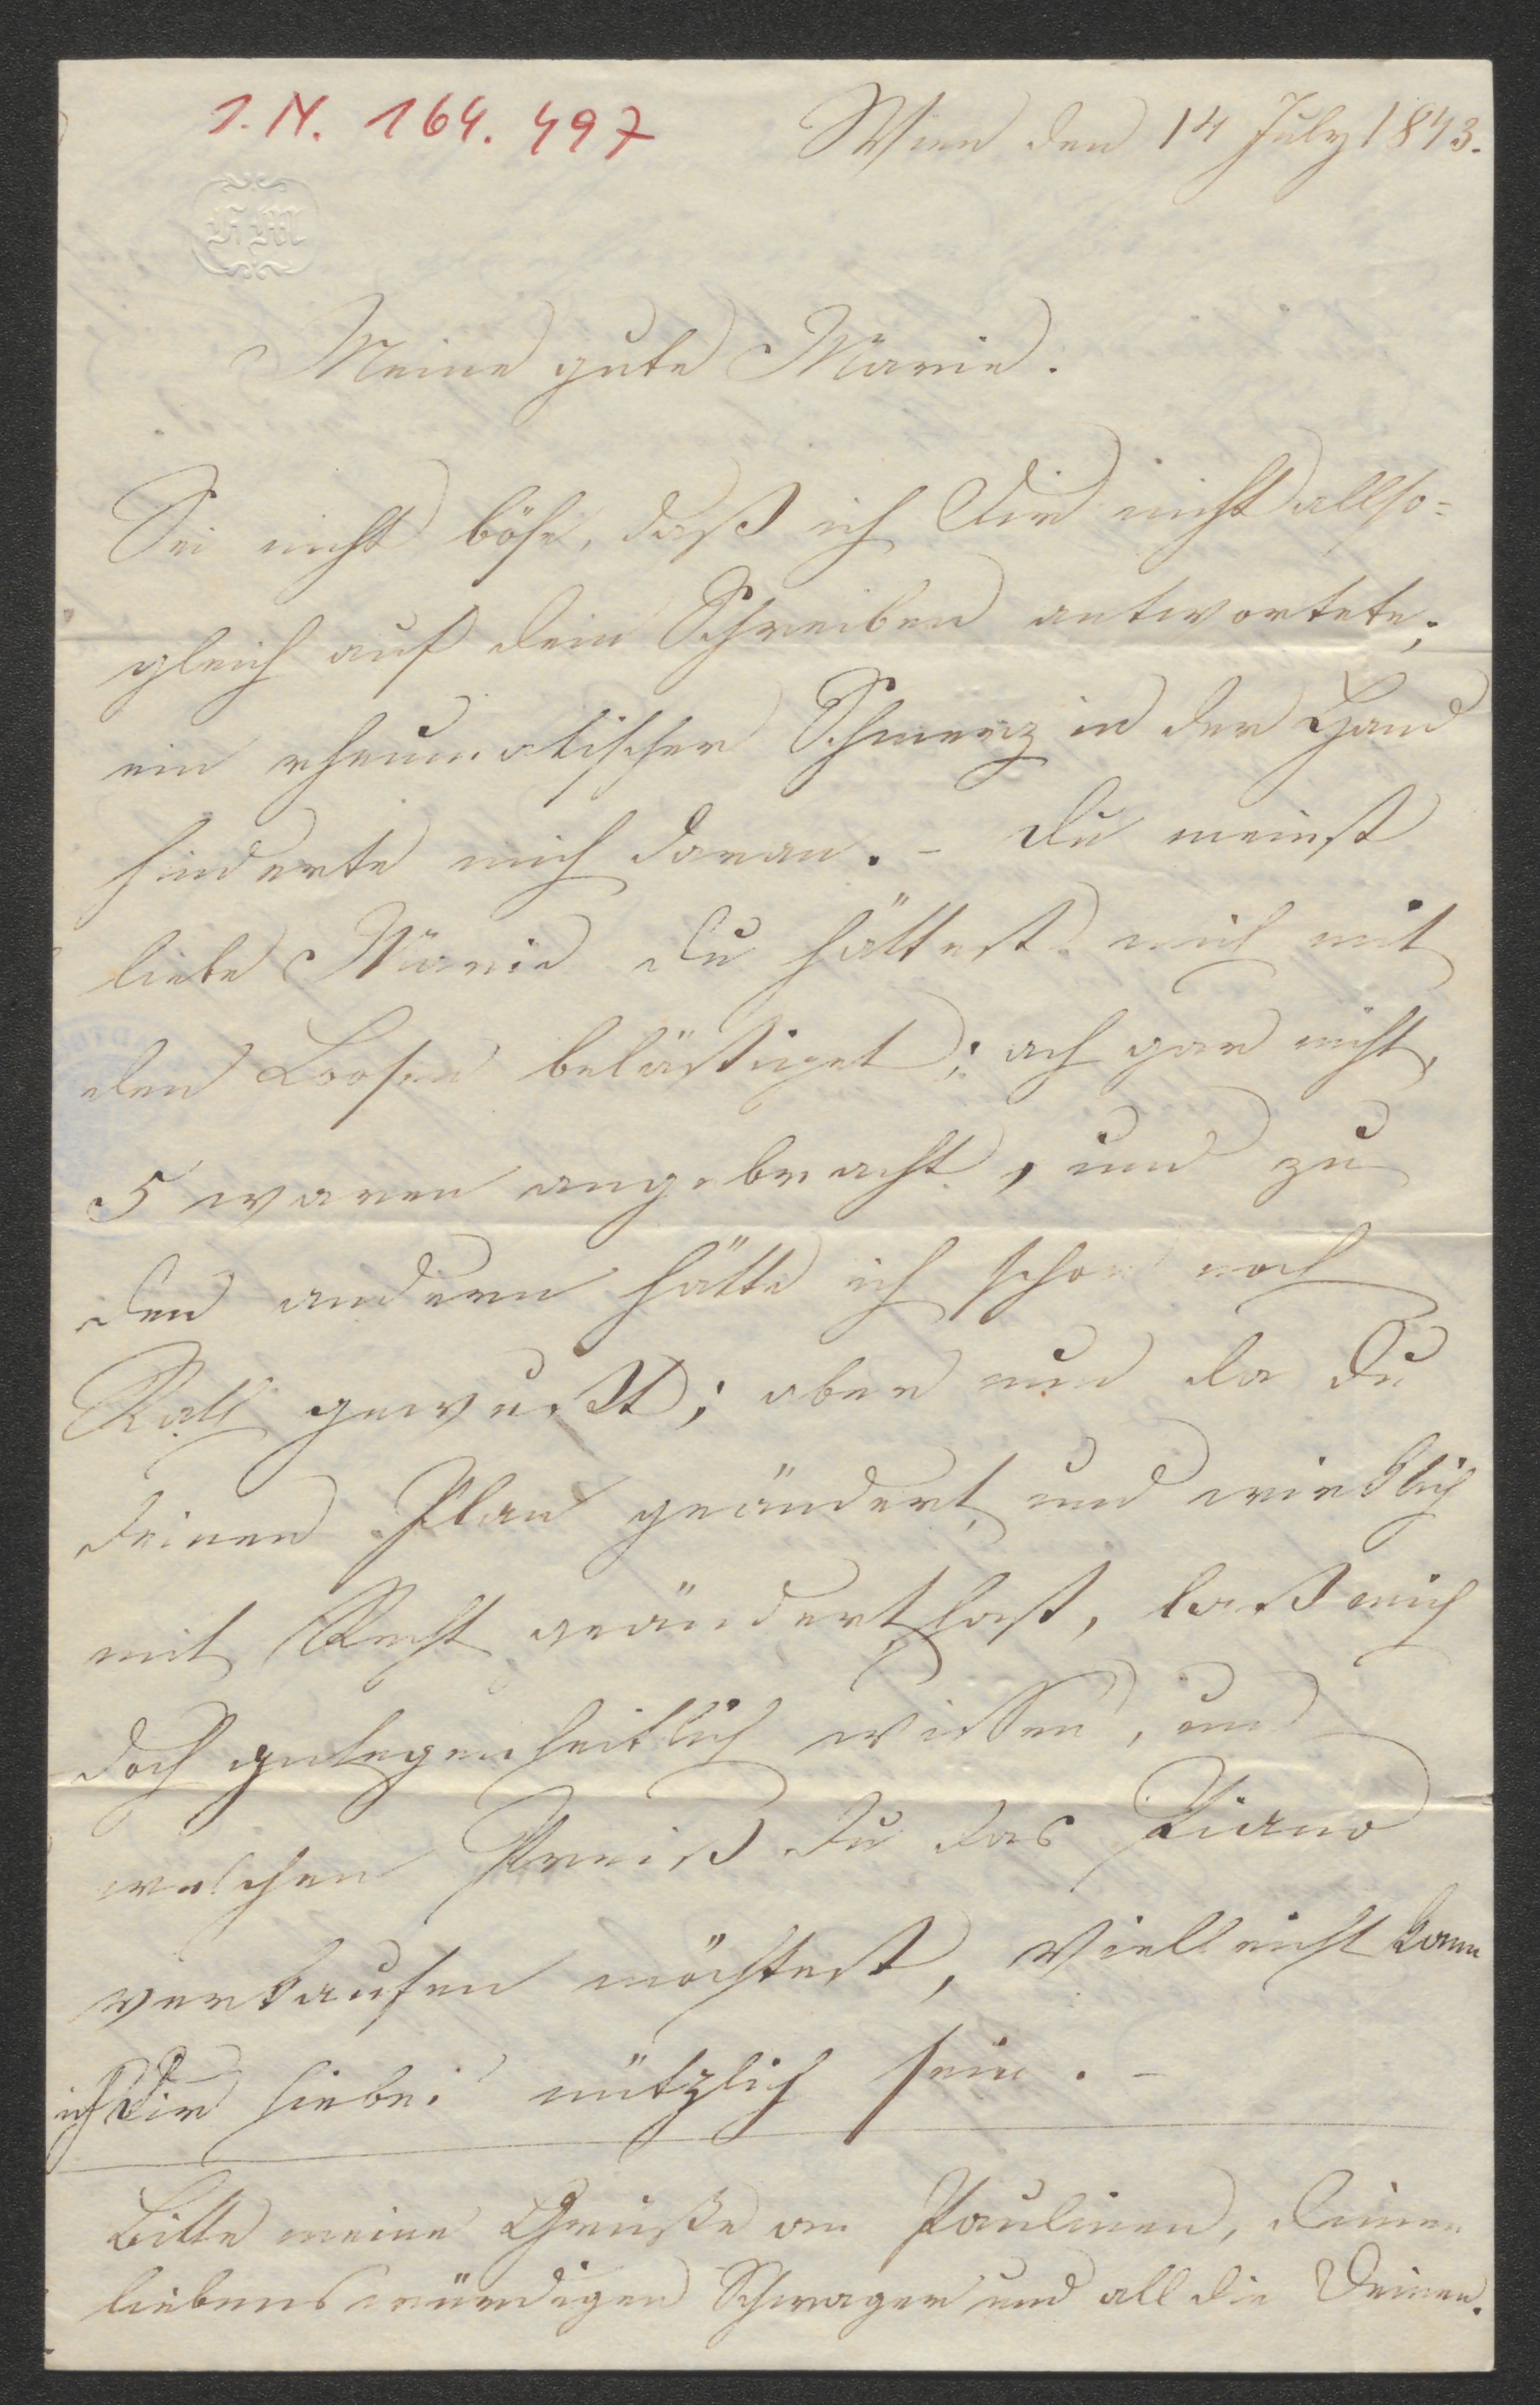 I.N. 164.497
Wien den 14 July 1843.
Meine gute Marie.
Sei nicht böse, daß ich Dir nicht allso=
gleich auf dein Schreiben antwortete;
ein rheumatischer Schmerz in der Hand
hinderte mich daran. – Du meinst
liebe Marie du hättest mich mit
den Loosen belästiget; ach gar nicht,
5 waren angebracht, und zu
den andern hätte ich schon noch
Rath gewußt; aber nun da Du
deinen Plan geändert und wirklich
mit Recht geändert hast, laß mich
doch gelegenheitlich wissen, um
welchen Preiß du das Piano
verkaufen möchtest, vielleicht kann
ich Dir hiebei nützlich sein. –
Bitte meine Grüße an Paulinen, deinen
liebenswürdigen Schwager und all die Deinen.